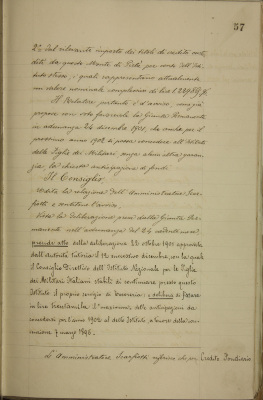 57
2° del rilevante importo dei titoli di rendita
diti da questo Monte di Pietà per conto dell'Isti-
tuto stesso, i quali rappresentano attualmente
un valore nominale complessivo di lire
Il Relatore pertanto è d'avviso, come già
propose con voto favorevole la Giunta Permanente
in adunanza 24 dicembre 1901, che anche per il
prossimo anno 1902 si possa concedere all'Istituto
delle Figlie dei Militari, senza alcun'altra garan-
zia, la chiesta anticipazione di fondi.
Il Consiglio
Udita la relazione dell'Amministratore
e sentitone l'avviso,
Vista la deliberazione presa dalla Giunta Per-
manente nell'adunanza del 24
prende atto della deliberazione 22 ottobre 1901 approvata
dall'Autorità tutoria il 12 successivo dicembre, con la quale
il Consiglio Direttivo dell'Istituto Nazionale per le Figlie
dei Militari Italiani stabilì di continuare presso questo
Istituto il proprio servizio di Tesoreria; e delibera di fissare
in lire trentamila il massimo delle anticipazioni da
concedersi per l'anno 1902 al detto Istituto, a tenore della con-
venzione 7 marzo 1896.
L'Amministratore riferisce che, con Credito Fondiario